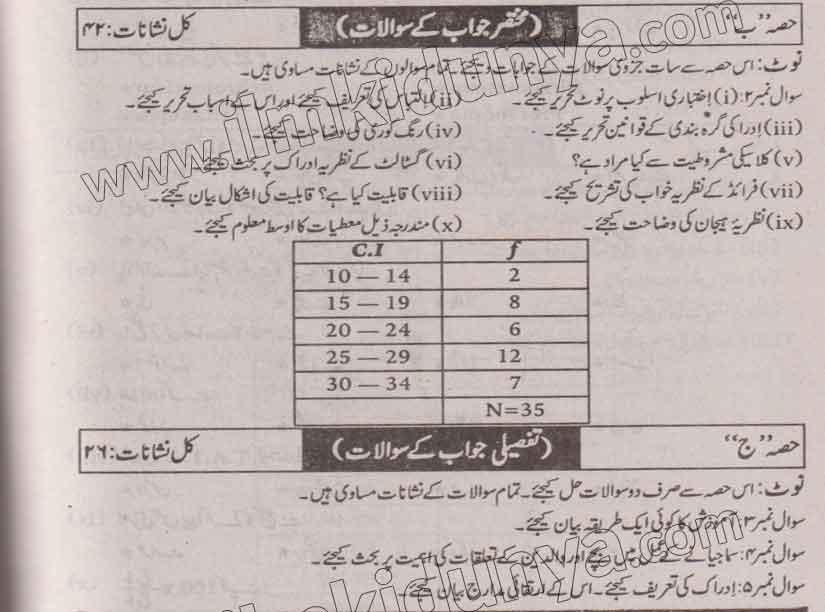 حصہ ’’ب‘‘ (مختصر جواب کے سوالات) کل نشانات: ۴۲
نوٹ: اس حصہ سے سات جزوی سوالات کے جوابات دیجئے۔ تمام سوالوں کے نشانات مساوی ہیں۔
سوال نمبر ۲: (i) اختباری اسلوب پر نوٹ تحریر کیجئے۔ (ii) التباس کی تعریف کیجئے اور اس کے اسباب تحریر کیجئے۔
(iii) ادراکی گرہ بندی کے قوانین تحریر کیجئے۔ (iv) رنگ کوری کی وضاحت کیجئے۔
(v) کلاسیکی مشروطیت سے کیا مراد ہے؟ (vi) گسٹالٹ کے نظریہ ادراک پر بحث کیجئے۔
(vii) فرائڈ کے نظریہ خواب کی تشریح کیجئے۔ (viii) قابلیت کیا ہے؟ قابلیت کی اشکال بیان کیجئے۔
(ix) نظریۂ ہیجان کی وضاحت کیجئے۔ (x) مندرجہ ذیل معطیات کا اوسط معلوم کیجئے۔
C.I f
10 — 14 2
15 — 19 8
20 — 24 6
25 — 29 12
30 — 34 7
N=35
حصہ ’’ج‘‘ (تفصیلی جواب کے سوالات) کل نشانات: ۲۶
نوٹ: اس حصہ سے صرف دو سوالات حل کیجئے۔ تمام سوالات کے نشانات مساوی ہیں۔
سوال نمبر ۳: آموزش کا کوئی ایک طریقہ بیان کیجئے۔
سوال نمبر ۴: سماجیانے کے عمل میں بچے اور والدین کے تعلقات کی اہمیت پر بحث کیجئے۔
سوال نمبر ۵: ادراک کی تعریف کیجئے۔ اس کے ارتقائی مدارج بیان کیجئے۔
www.ilmkidunya.com